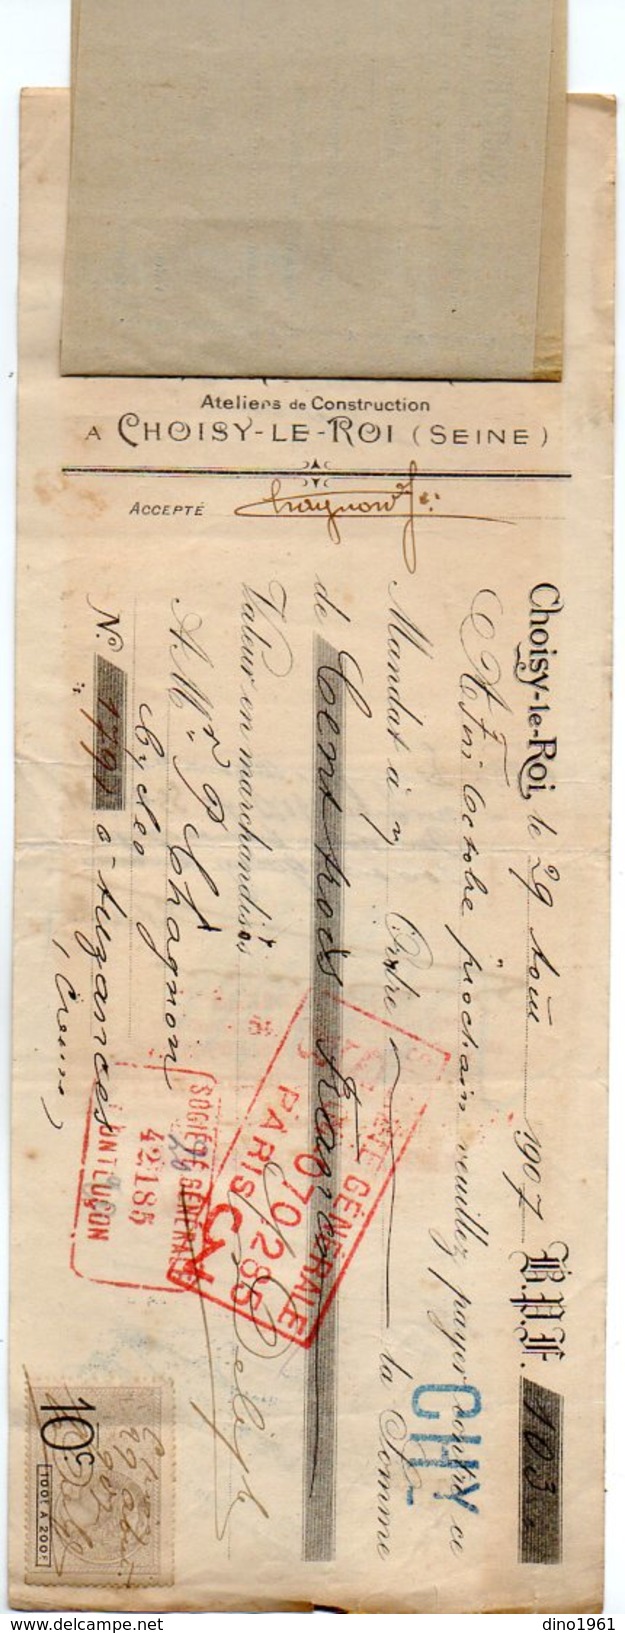 Ateliers de Construction
A CHOISY-LE-ROI (SEINE)
ACCEPTÉ Chagnon
Choisy-le-Roi, le 29 Aout 1907 B.P.F. 103
A Fin Octobre prochain veuillez payer contre ce
Mandat à Ordre la Somme
de Cent trois Francs
Valeur en marchandises
A Mr P. Chagnon
Cycles
N° 1791 à Auzances
(Creuse)
SOCIÉTÉ GÉNÉRALE
70-285
PARIS CN
SOCIÉTÉ GÉNÉRALE
42185
MONTLUÇON
CHY
10c
100f A 200f
dino1961